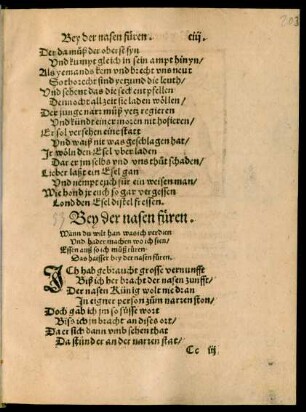 Bey der nasen füren. ciij.
203
Der da müß der oberst syn
Vnd kumpt gleich in sein ampt hinyn/
Als yemands kem vnd brecht vns neut
So thorecht sind yetzund die leuth/
Vnd sehent das die seck entpfellen
Dennocht allzeit sie laden wöllen/
Der junge narr müß yetz regieren
Vnd kündt einer moren nit hofieren/
Er sol versehen eine statt
Vnd waiß nit was geschlagen hat/
Jr wöln den Esel vberladen
Dar er jm selbs vnd vns thüt schaden/
Lieber laßt ein Esel gan
Vnd nempt euch für ein weisen man/
Wie hond jr euch so gar vergessen
Lond den Esel distel fressen.
53 Bey der nasen füren.
Wann du wilt han was ich verdien
Vnd hader machen wo ich bien/
Essen auß so ich müß rüren
Das haisser bey der nasen füren.
ICh hab gebraucht grosse vernunfft
Biß ich her bracht der nasen zunfft/
Der nasen Künig wolt me dran
In eigner person zům narren ston/
Doch gab ich jm so süsse wort
Biß ich jn bracht an dises ort/
Da er sich dann vmb sehen that
Da stünd er an der narren stat/
Cc iij